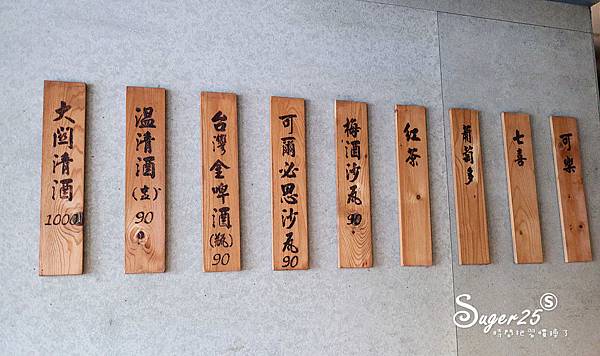 大関清酒
1000
温清酒(壺)
90
台灣金啤酒(瓶)
90
可爾必思沙瓦
90
梅酒沙瓦
90
紅茶
葡萄多
七喜
可樂
Suger25 S
時間把習慣換了